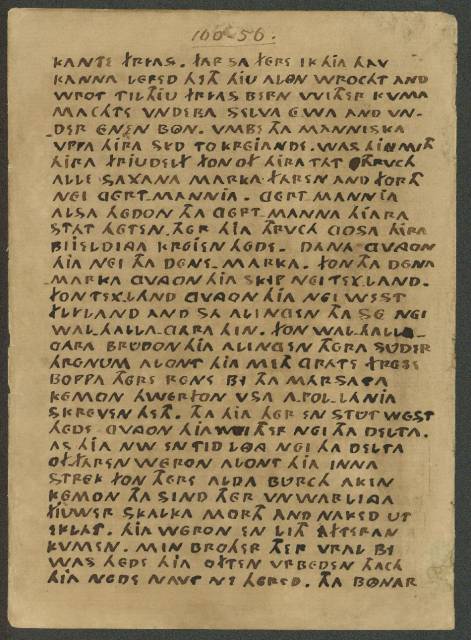 100-56.
KANTE FRYAS. FAR SA FERE IK HIA HAV
KANNA LERED HETH HIU ALON WROCHT AND
WROT TIL THIU FRYAS BERN WITHER KUMA
MACHTE VNDERA SELVA EWA AND VN-
DER ENEN BON. VMBE THA MANNISKA
VPPA HIRA SID TO KREIANDE. WAS HIU MITH
HIRA FRIUDELF FON OF HIRA TAT THRVCH
ALLE SAXANA MARKA FAREN AND FORTH
NEI GERTMANNIA. GERTMANNIA
ALSA HEDON THA GERTMANNA HIARA
STAT HETEN. THER HIA THRVCH GOSA HIRA
BIIELDIGA KREIEN HEDE. DANA GVNGON
HIA NEI THA DENEMARKA. FON THA DENA
MARKA GVNGON HIA SKIP NEI TEXLAND.
FON TEXLAND GVNGON HIA NEI WEST
FLYLAND AND SA ALINGEN THA SE NEI
WALHALLAGARA HIN. FON WALHALLA-
GARA BRUDON HIA ALINGEN THERA SUDER
HRENUM ALONT HIA MITH GRATE FRESE
BOPPA THERE RENE BI THA MARSATA
KEMON HWERFON VSA APOLLANIA
SKREVEN HETH. THA HIA HER EN STUT WEST
HEDE GVNGON HIA WITHER NEI THA DELTA.
AS HIA NW EN TID LONG NEI THA DELTA
OFFAREN WERON ALONT HIA INNA
STREK FON THERE ALDA BURCH AKEN
KEMON THA SIND THER UNWARLINGA
FIUWER SKALKA MORTH AND NAKED UT
EKLAT. HIA WERON EN LITH AFTERAN
KUMEN. MIN BROTHER THER VRAL BI
WAS HEDE HIA OFTEN VRBEDEN THACH
HIA NEDE NAVT NE HERED. THA BONAR